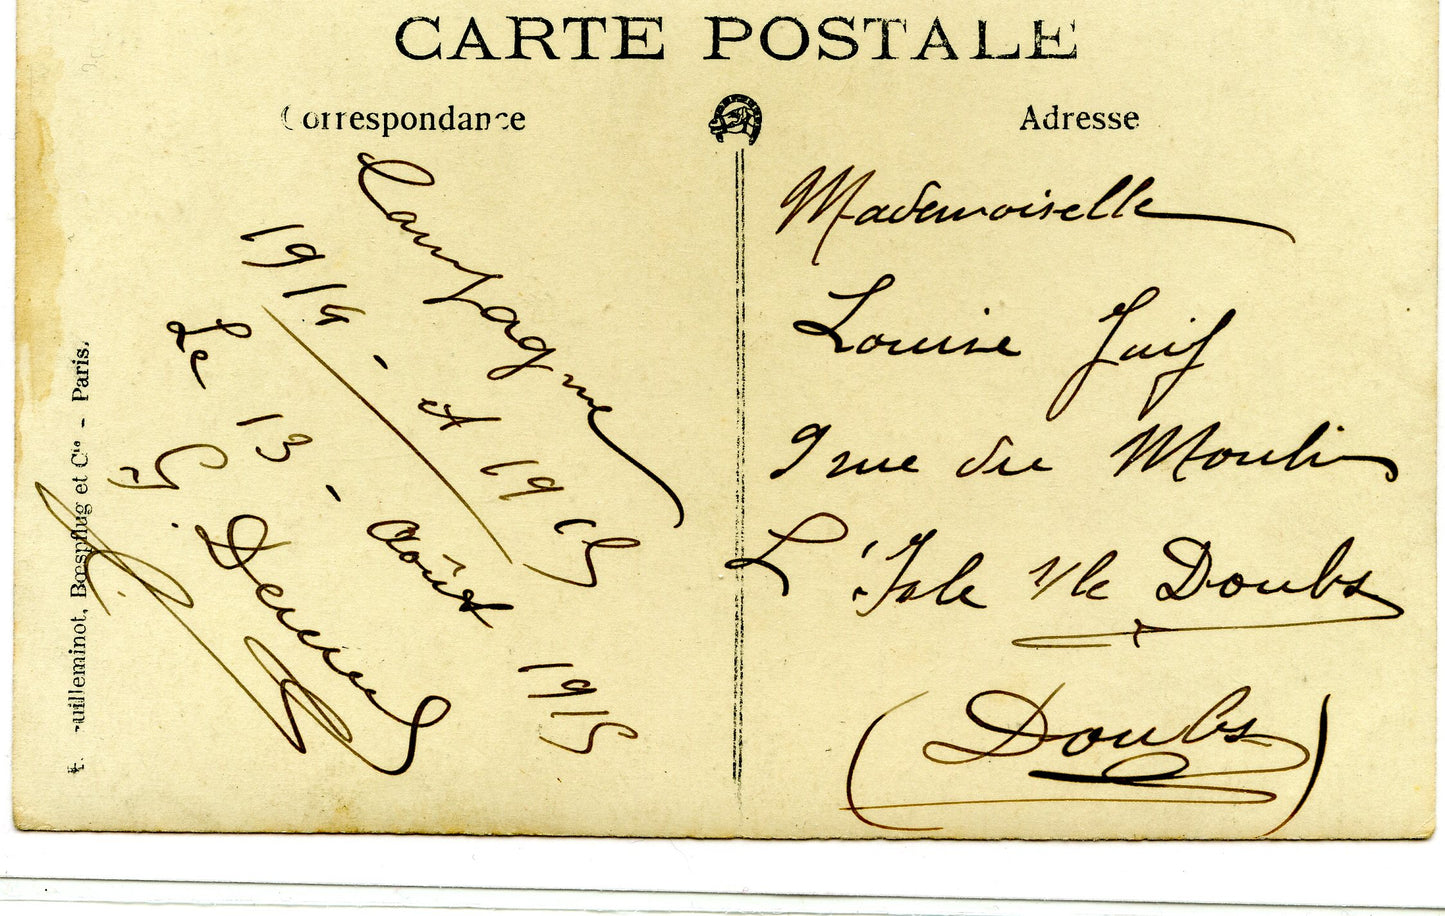 CARTE POSTALE
Correspondance
Adresse
Campagne
1914 - et 1915
Le 13 - Août 1915
G.
Mademoiselle
Louise Juif
9 rue du Moulin
L'Isle s/le Doubs
(Doubs)
uilleminot, Bœspflug et Cie - Paris.